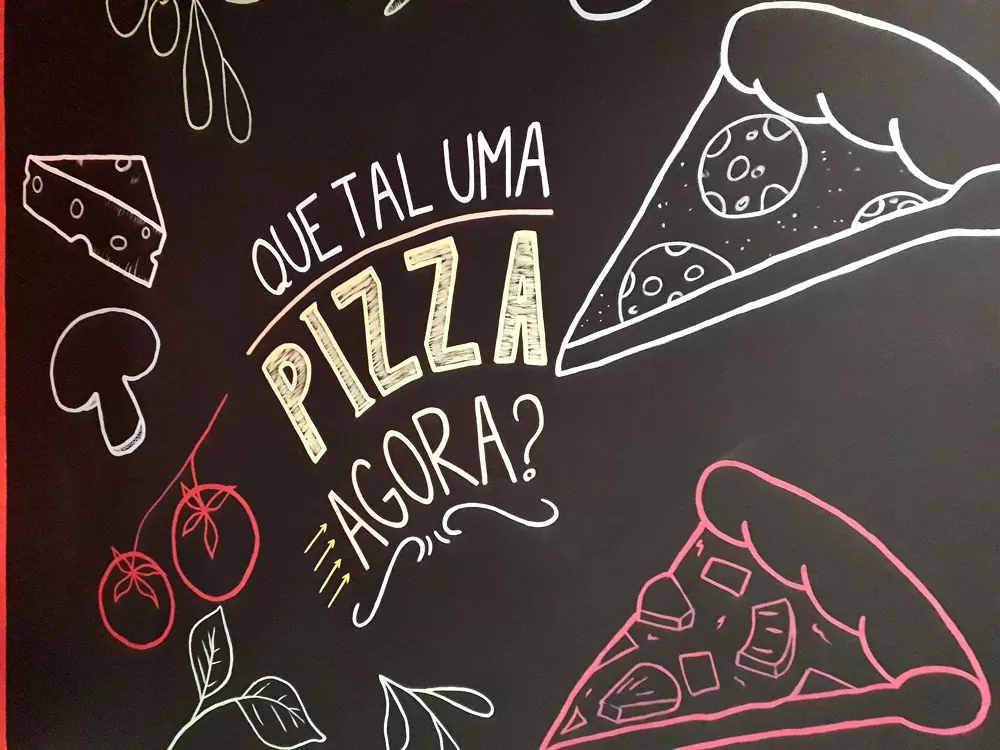 QUE TAL UMA
PIZZA
AGORA?